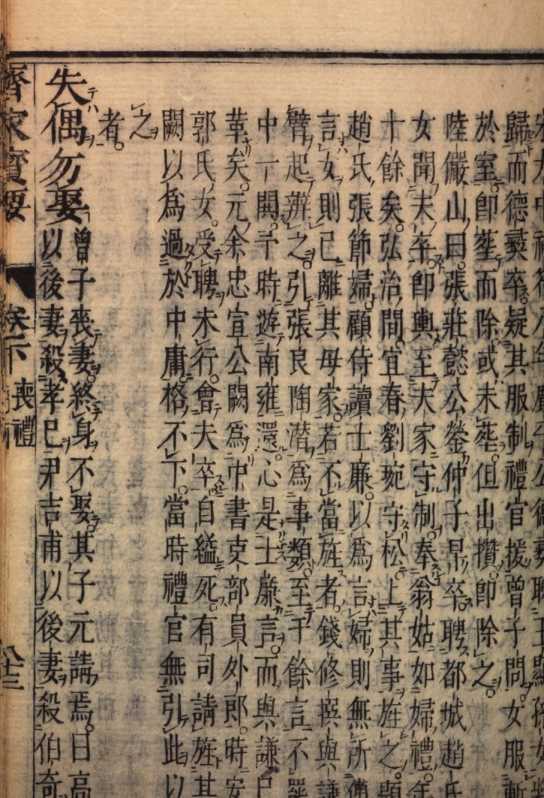 歸而德彛卒疑其服制禮官援曾子問女服斬
於室即塟而除或未塟但出攢即除之
陸儼山曰張莊懿公蓥仲子昻卒聘都城趙氏
女聞夫卒即輿至夫家守制奉翁姑如婦禮年
十餘矣弘治間宜春劉琬守松上其事旌之顧
趙氏張節婦顧侍讀士廉以為言婦則無所傳
言女則已離其母家若不當旌者錢修撰與謙
臂起辨之引張良陶潜為事類至千餘言不
中一闋予時遊南雍還心是士廉言而與謙已
革矣元余忠宣公闕為中書吏部員外郎時安
郭氏女受聘未行會夫卒自縊死有司請旌其
闕以為過於中庸格不下當時禮官無引此以
之
者
失偶勿娶曾子喪妻終身不娶其子元請焉曰高
以後妻殺孝已尹吉甫以後妻殺伯奇
齊家寶要 卷下 喪禮